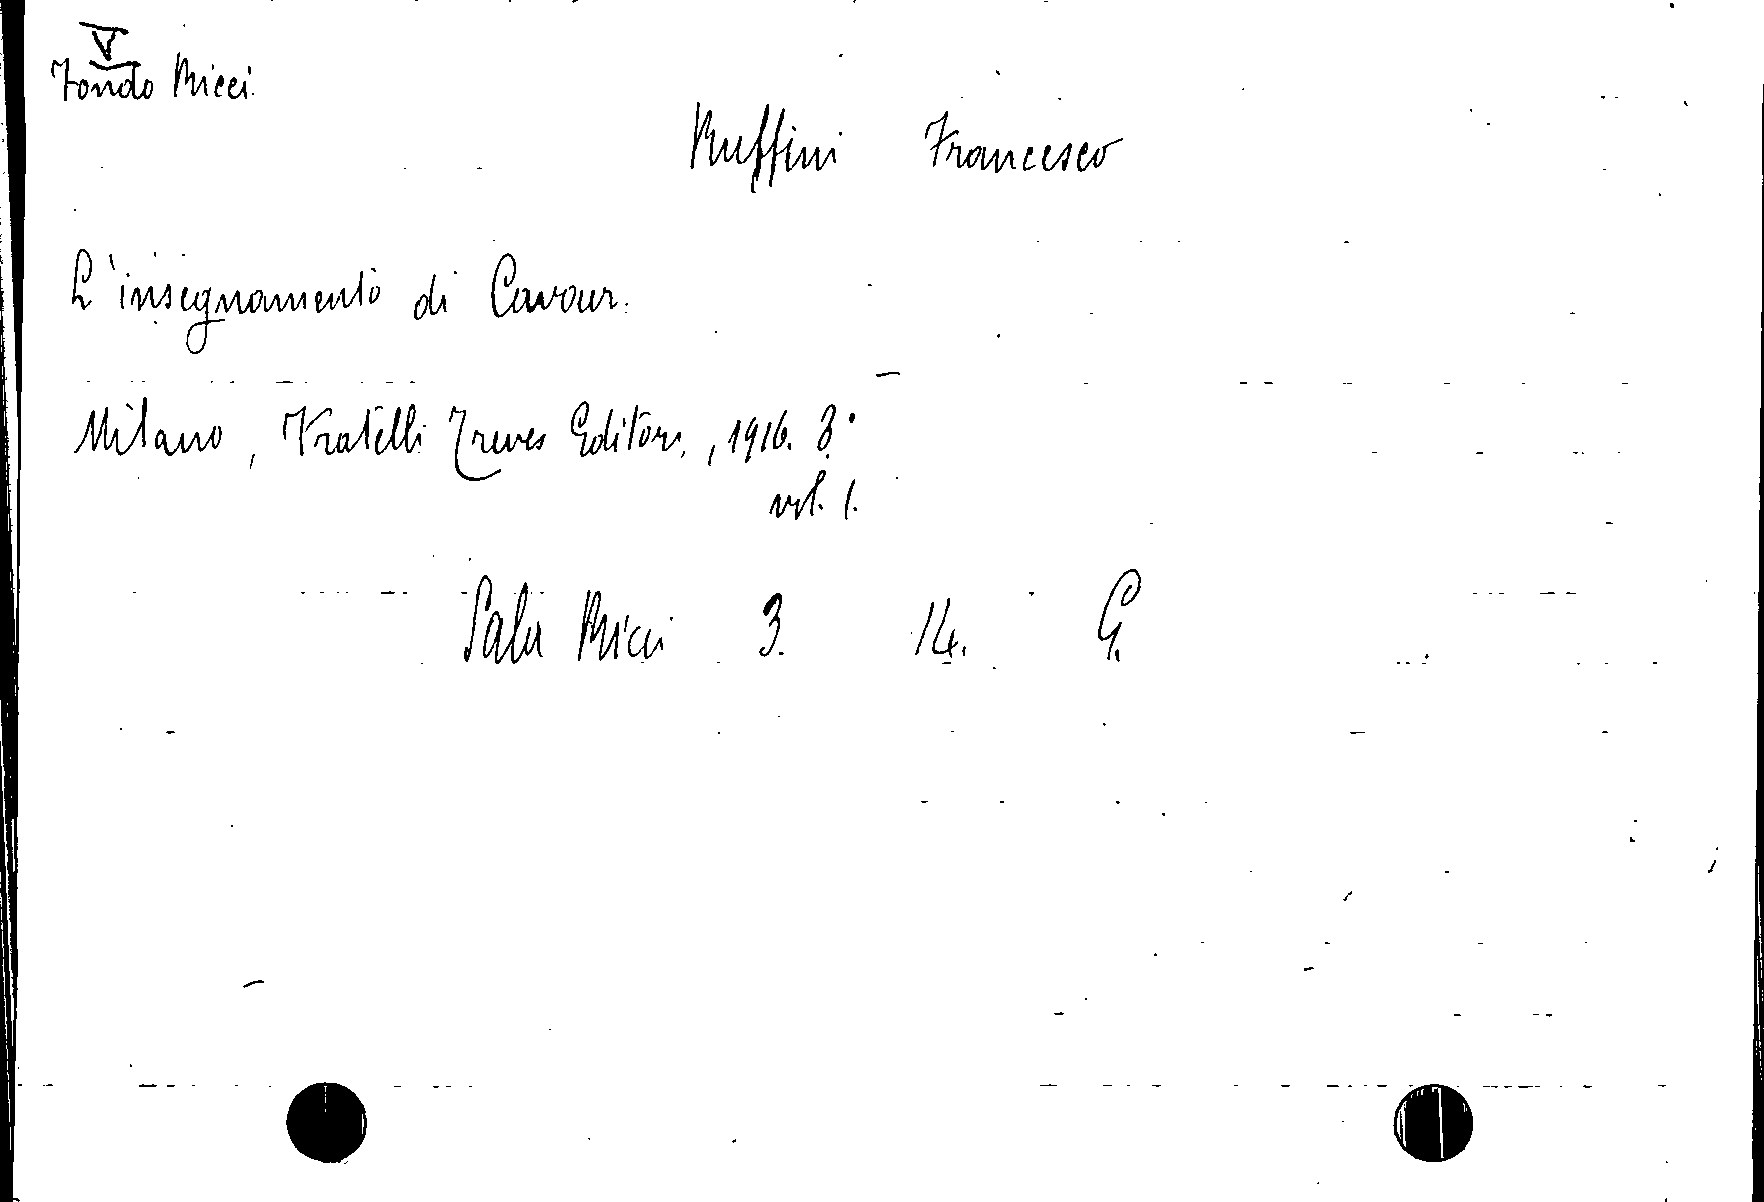 V
Fondo Ricci
Ruffini Francesco
L'insegnamento di Cavour.
Milano, Fratelli Treves Editori, 1916. 8°
vol. 1.
Sala Ricci 3. 14. G.